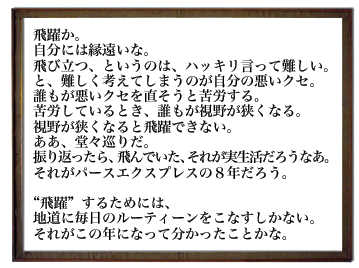 飛躍か。
自分には縁遠いな。
飛び立つ、というのは、ハッキリ言って難しい。
と、難しく考えてしまうのが自分の悪いクセ。
誰もが悪いクセを直そうと苦労する。
苦労しているとき、誰もが視野が狭くなる。
視野が狭くなると飛躍できない。
ああ、堂々巡りだ。
振り返ったら、飛んでいた、それが実生活だろうなあ。
それがパースエクスプレスの８年だろう。
“飛躍”するためには、
地道に毎日のルーティーンをこなすしかない。
それがこの年になって分かったことかな。